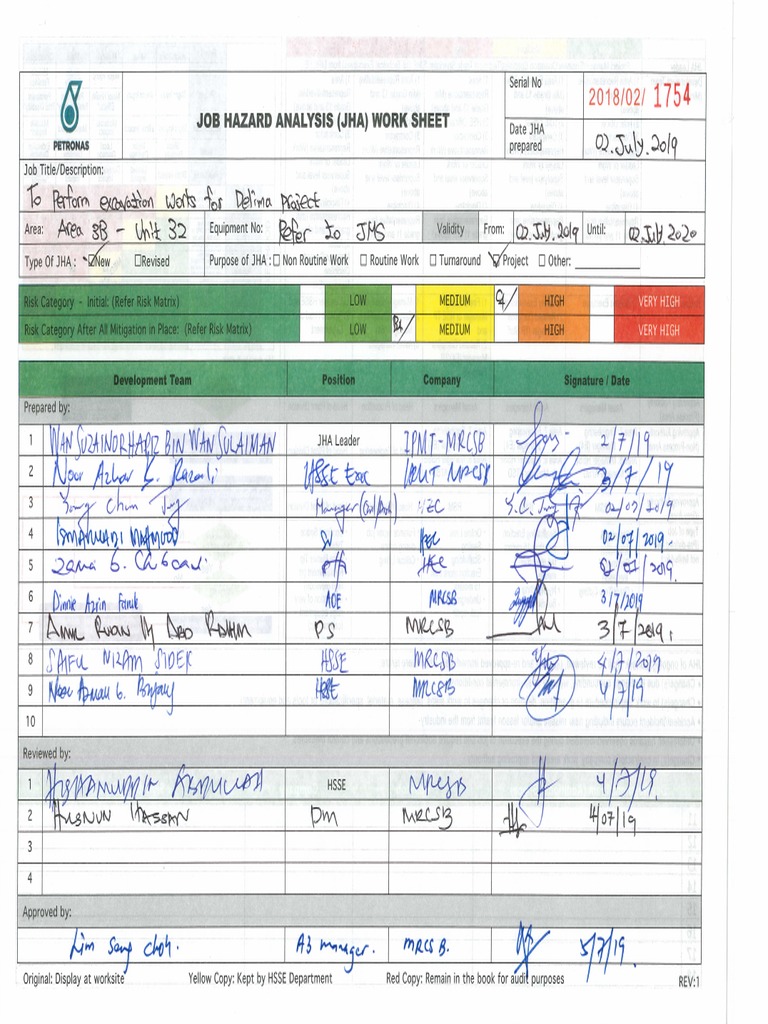 PETRONAS
JOB HAZARD ANALYSIS (JHA) WORK SHEET
Serial No 2018/02/ 1754
Date JHA prepared 02.July.2019
Job Title/Description:
To Perform excavation works for Delima Project
Area: Area 3B - Unit 32 Equipment No: Refer to JMS Validity From: 02.July.2019 Until: 02.July.2020
Type Of JHA : New Revised Purpose of JHA : Non Routine Work Routine Work Turnaround Project Other:
Risk Category - Initial: (Refer Risk Matrix) LOW MEDIUM HIGH VERY HIGH
Risk Category After All Mitigation in Place: (Refer Risk Matrix) LOW MEDIUM HIGH VERY HIGH
Development Team Position Company Signature / Date
Prepared by:
1 WAN SUZAINORHAFIZ BIN WAN SULAIMAN JHA Leader IPMT-MRCSB 2/7/19
2 Noor Azhar B. Razali HSSE Exec MRCSB 3/7/19
3 Yong Chun Manager HEC 02/07/2019
4 MAHMOOD SV HEC 02/07/2019
5 HEC
6 Dinnie Azrin Faruk AOE MRCSB 3/7/2019
7 PS MRCSB 3/7/2019
8 SAIFUL NIZAM SIDEK HSSE MRCSB 4/7/2019
9 Noor Azman b. HSSE MRCSB 4/7/19
10
Reviewed by:
1 HISHAMUDDIN ABDULLAH HSSE MRCSB 4/7/19
2 HUSNUN HASSAN DM MRCSB 4/07/19
3
4
Approved by:
Lim Seng Choh. A3 manager. MRCSB. 5/7/19.
Original: Display at worksite Yellow Copy: Kept by HSSE Department Red Copy: Remain in the book for audit purposes REV:1